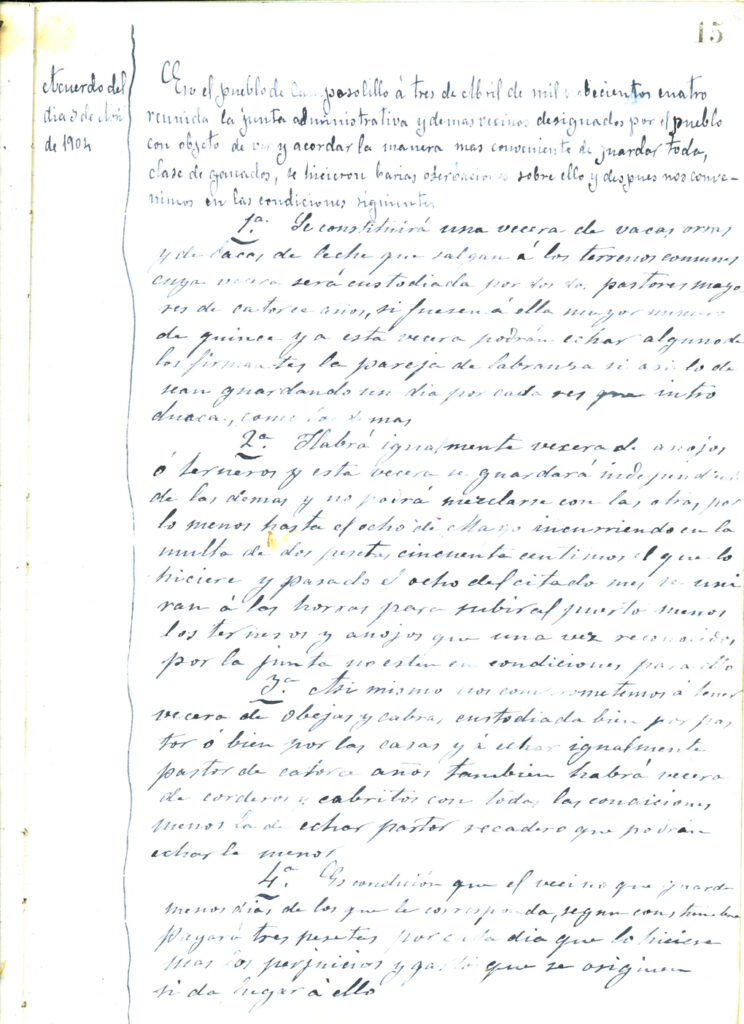 15
Acuerdo del
dia 3 de Abril
de 1904
En el pueblo de Camposolillo á tres de Abril de mil nobecientos cuatro
reunida la junta administrativa y demas vecinos designados por el pueblo
con objeto de ver y acordar la manera mas conveniente de guardar toda,
clase de ganados, se hicieron barias oserbaciones sobre ello y despues nos conve-
nimos en las condiciones siguientes
1ª. Se constituirá una vecera de vacas orras
y de bacas de leche que salgan á los terrenos comunes
cuya vecera será custodiada por dos de pastores mayo
res de catorce años, si fuesen á ella mayor numero
de quince y a esta vecera podrán echar alguno de
los firmantes la pareja de labranza si asi lo de
sean guardando un dia por cada res que intro
duzca, como los demas
2ª. Habrá igualmente vecera de anojos
ó terneros y esta vecera se guardará
de las demas y no podrá mezclarse con las otras por
lo menos hasta el ocho de Mayo incurriendo en la
multa de dos pesetas cincuenta centimos el que lo
hiciere y pasado el ocho del citado mes se uni
ran á las horras para subir al puerto menos
los terneros y anojos que una vez reconocidos
por la junta no esten en condiciones para ello
3ª. Asi mismo nos comprometemos á tener
vecera de obejas y cabras custodiada bien por pas
tor ó bien por las casas y á echar igualmente
pastor de catorce años tambien habrá vecera
de corderos y cabritos con todas las condiciones
menos la de echar pastor recadero que podrán
echarle menor
4ª. Es condición que el vecino que guarde
menos dias de los que le corresponda, segun constumbre
pagará tres pesetas por cada dia que lo hiciere
mas los perjuicios y gastos que se originen
si da lugar á ello